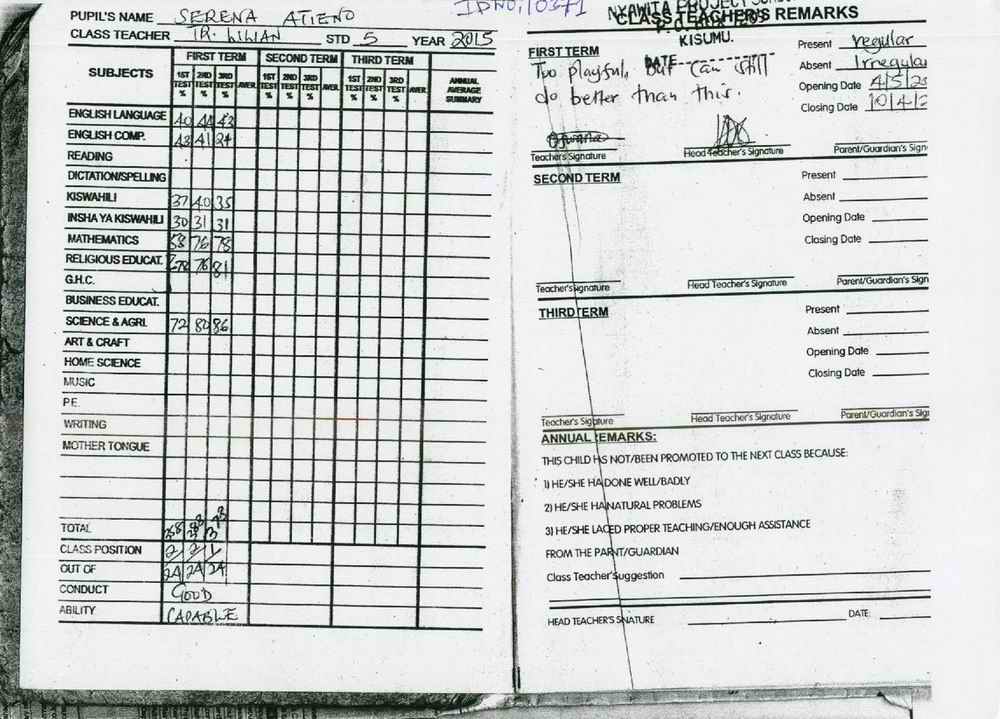 PUPIL'S NAME SERENA ATIENO
CLASS TEACHER TR. LILIAN STD 5 YEAR 2015
SUBJECTS
FIRST TERM SECOND TERM THIRD TERM
1ST TEST % 2ND TEST % 3RD TEST % AVER. 1ST TEST % 2ND TEST % 3RD TEST % AVER. 1ST TEST % 2ND TEST % 3RD TEST % AVER. ANNUAL AVERAGE SUMMARY
ENGLISH LANGUAGE 40 44 43
ENGLISH COMP. 43 41 24
READING
DICTATION/SPELLING
KISWAHILI 37 40 35
INSHA YA KISWAHILI 30 31 31
MATHEMATICS 58 76 78
RELIGIOUS EDUCAT. 78 76 81
G.H.C.
BUSINESS EDUCAT.
SCIENCE & AGRI. 72 80 86
ART & CRAFT
HOME SCIENCE
MUSIC
P.E.
WRITING
MOTHER TONGUE
TOTAL
CLASS POSITION 2 2 1
OUT OF 24 24 24
CONDUCT GOOD
ABILITY CAPABLE
ID NO: 10371
NYAWITA PROJECT
CLASS TEACHER'S REMARKS
KISUMU.
DATE
FIRST TERM
Too playful, but can still
do better than this.
Present regular
Absent Irregular
Opening Date 4/5/20
Closing Date 10/4/2
Teacher's Signature Head Teacher's Signature Parent/Guardian's Sign
SECOND TERM
Present
Absent
Opening Date
Closing Date
Teacher's Signature Head Teacher's Signature Parent/Guardian's Sign
THIRD TERM
Present
Absent
Opening Date
Closing Date
Teacher's Signature Head Teacher's Signature Parent/Guardian's Sig
ANNUAL REMARKS:
THIS CHILD HAS NOT/BEEN PROMOTED TO THE NEXT CLASS BECAUSE:
1) HE/SHE HA DONE WELL/BADLY
2) HE/SHE HA NATURAL PROBLEMS
3) HE/SHE LACED PROPER TEACHING/ENOUGH ASSISTANCE
FROM THE PARNT/GUARDIAN
Class Teacher' Suggestion
HEAD TEACHER'S SNATURE DATE: